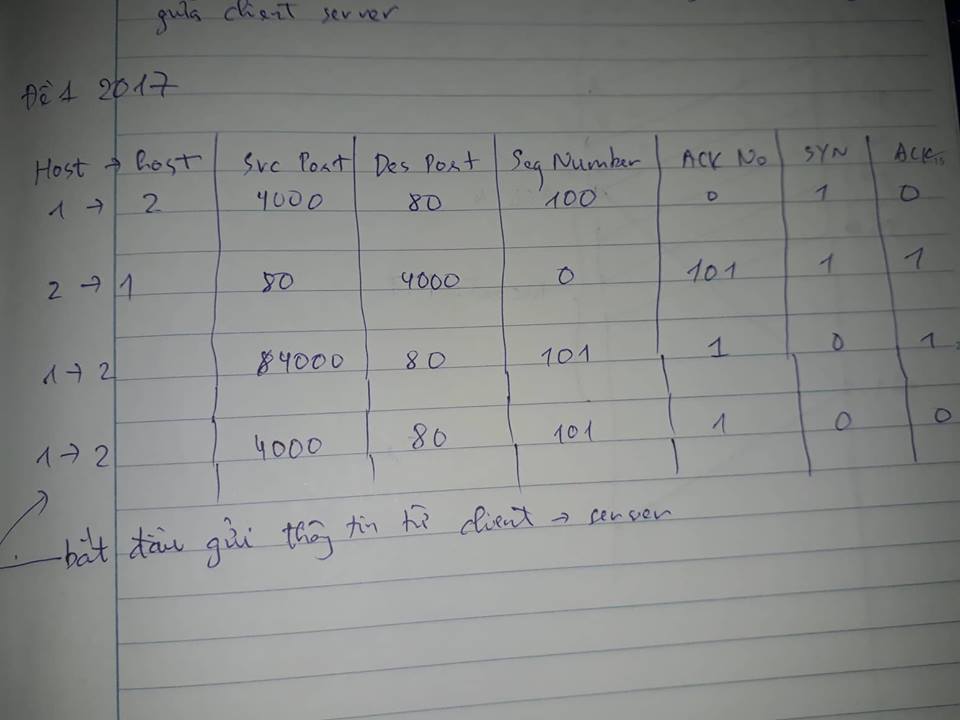 giữa client server
Đề 1 2017
Host → host Src Post Des Post Seq Number ACK No SYN ACK
1 → 2 4000 80 100 0 1 0
2 → 1 80 4000 0 101 1 1
1 → 2 4000 80 101 1 0 1
1 → 2 4000 80 101 1 0 0
bắt đầu gửi thông tin từ client → server